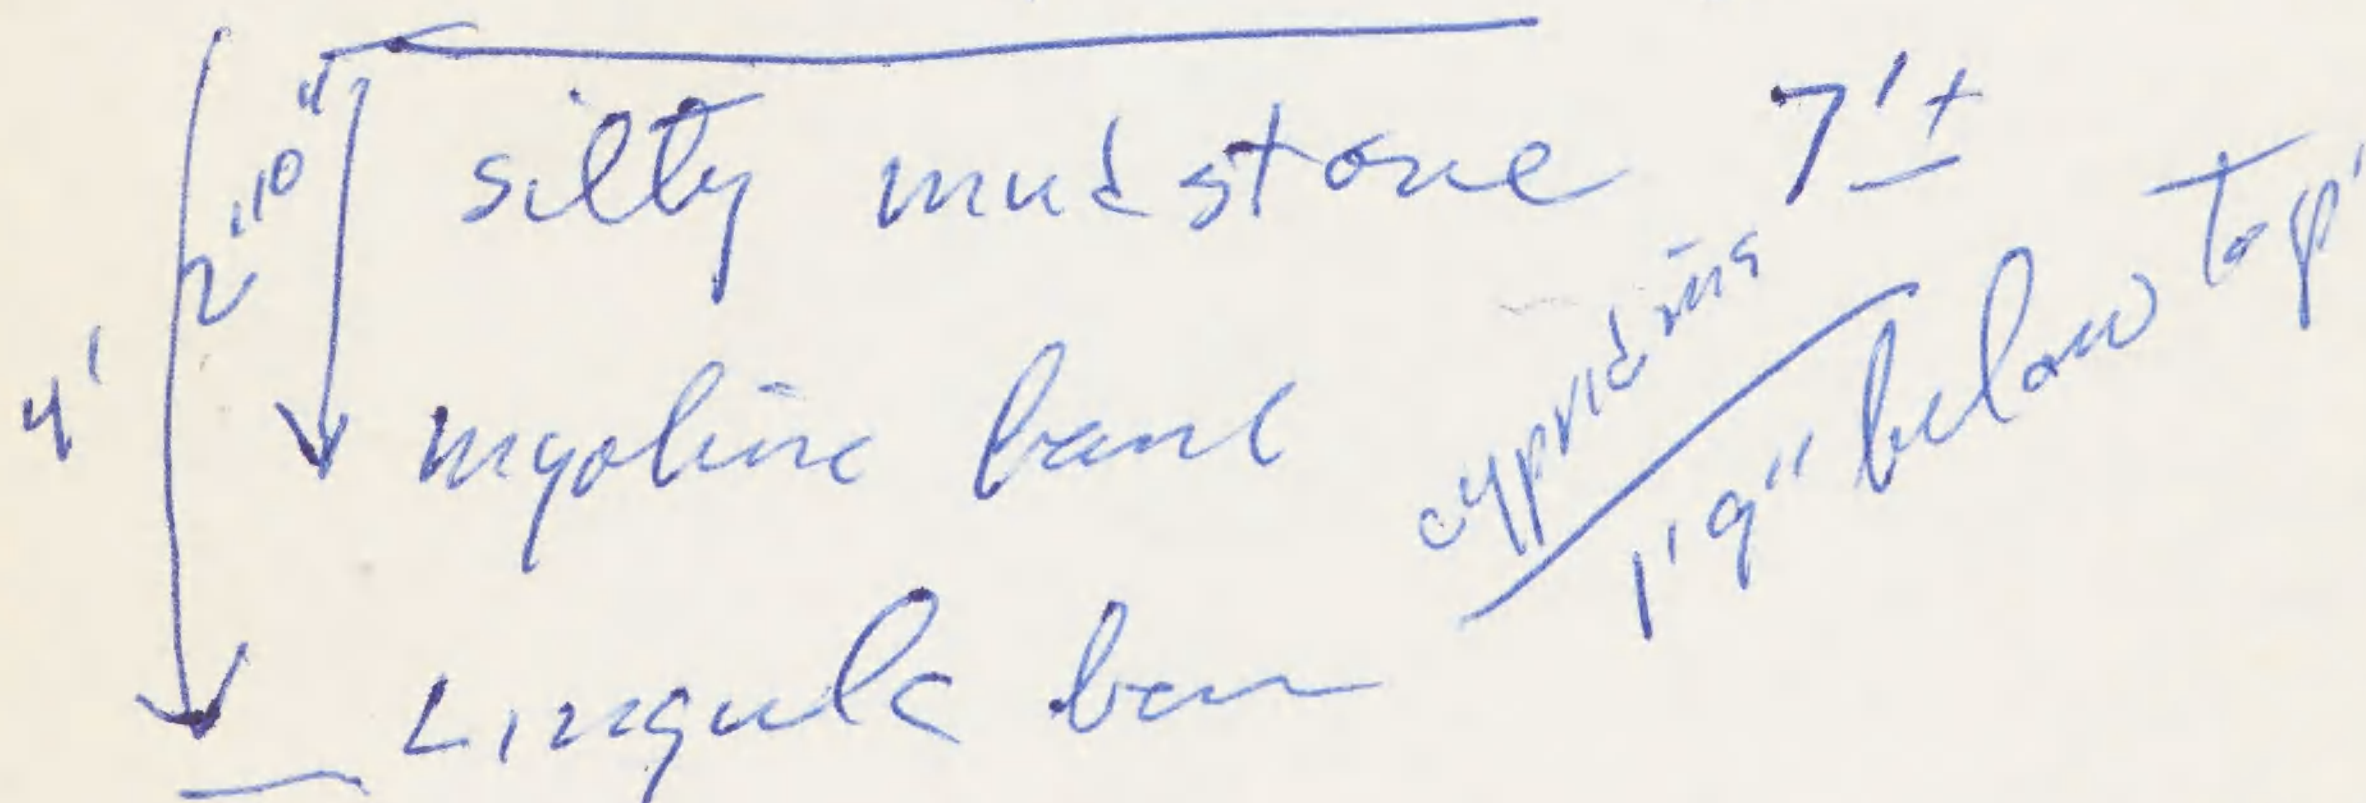 silty mudstone 7'±
2'10"
4'
myoline band
Lingula ban
cypridina
1'9" below top